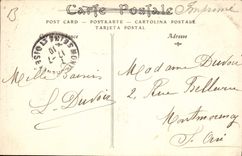 B
Carte Postale
Imprimé
POST CARD - POSTKARTE - CARTOLINA POSTALE
TARJETA POSTAL
Correspondance
Adresse
Madame Dubois
Mille baisers
2, Rue Bellevue
L. Dubois
Montmorency
S. Oise